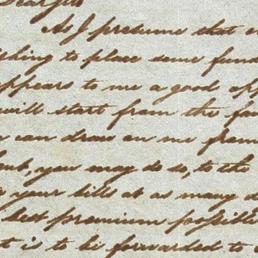 Dear Sir
As I presume that
shing to place some fund
appears to me a good op
will start from the
u can draw on me from
, you may do so, to the
your bills at as many d
best premium possible
t is to be forwarded to